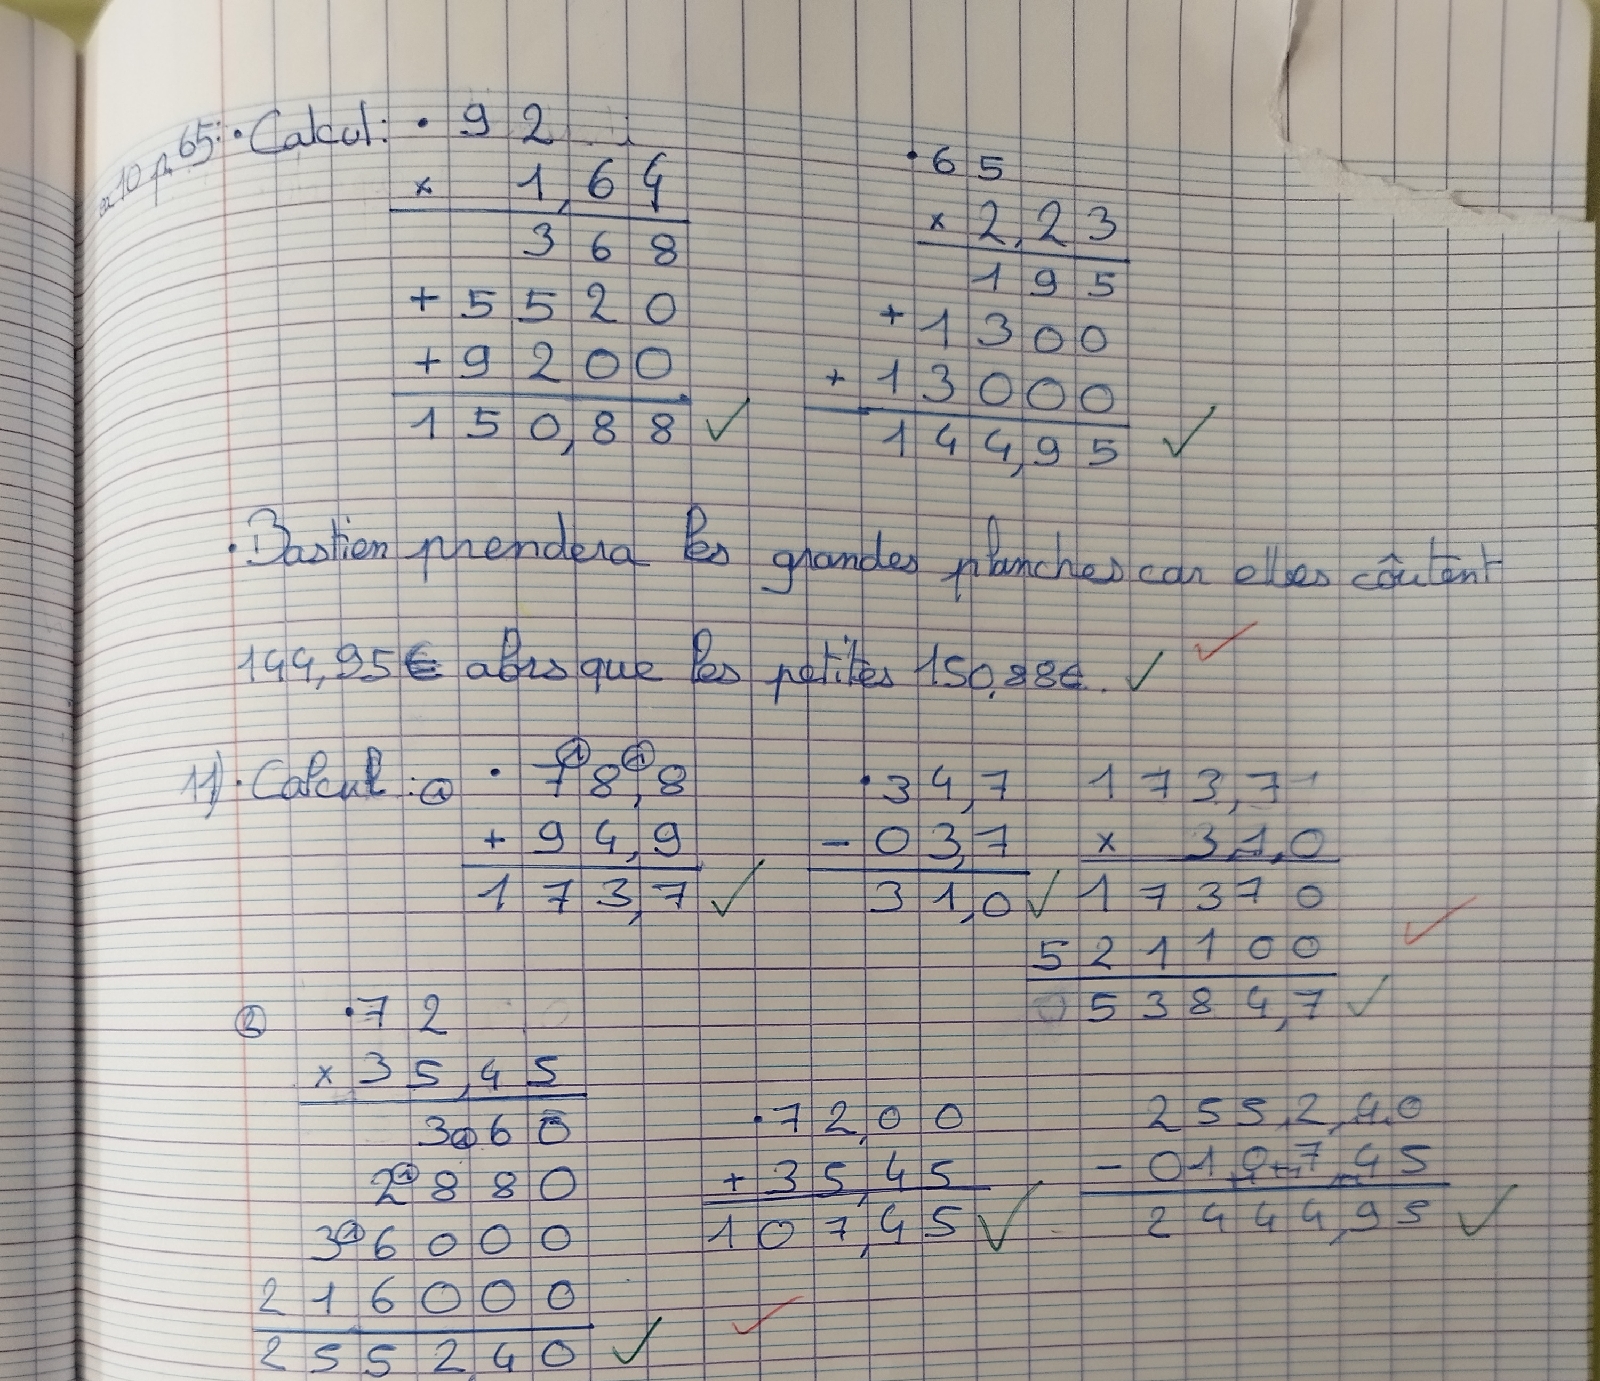 ex 10 p 65: • Calcul: • 92
x 1,64
368
+ 5520
+ 9200
150,88 ✓
• 65
x 2,23
195
+ 1300
+ 13000
144,95 ✓
• Bastien prendera les grandes planches car elles côutent
144,95€ alors que les petites 150,88€. ✓
11) • Calcul : a • 78,8
+ 94,9
173,7 ✓
• 34,7
- 03,7
31,0 ✓
173,7
x 31,0
17370
521100
5384,7 ✓
• 72
x 35,45
360
2880
36000
216000
2552,40 ✓
• 72,00
+ 35,45
107,45 ✓
2552,40
- 0107,45
2444,95 ✓